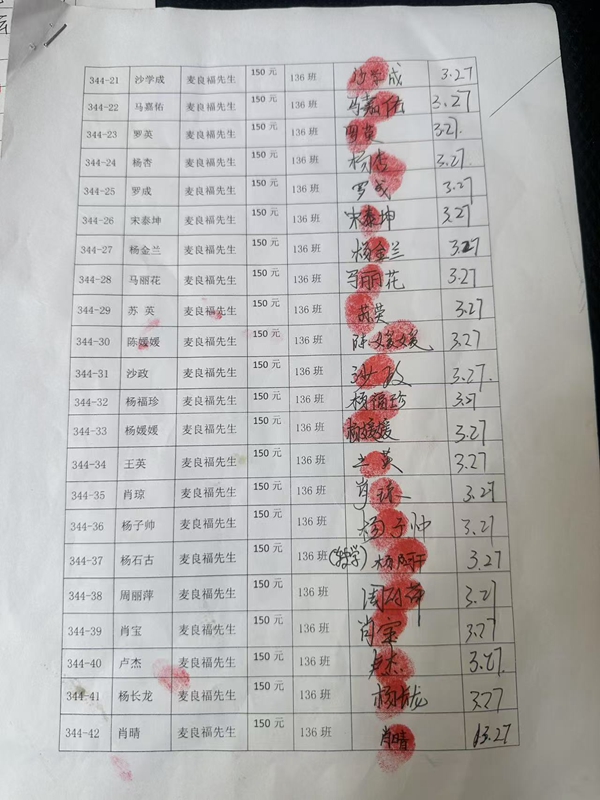 344-21 沙学成 麦良福先生 150元 136班 沙学成 3.27
344-22 马嘉佑 麦良福先生 150元 136班 马嘉佑 3.27
344-23 罗英 麦良福先生 150元 136班 罗英 3.27.
344-24 杨杏 麦良福先生 150元 136班 杨杏 3.27.
344-25 罗成 麦良福先生 150元 136班 罗成 3.27
344-26 宋泰坤 麦良福先生 150元 136班 宋泰坤 3.27
344-27 杨金兰 麦良福先生 150元 136班 杨金兰 3.27
344-28 马丽花 麦良福先生 150元 136班 马丽花 3.27
344-29 苏 英 麦良福先生 150元 136班 3.27
344-30 陈媛媛 麦良福先生 150元 136班 陈媛媛 3.27
344-31 沙政 麦良福先生 150元 136班 沙政 3.27.
344-32 杨福珍 麦良福先生 150元 136班 杨福珍 3.27
344-33 杨媛媛 麦良福先生 150元 136班 杨媛媛 3.27
344-34 王英 麦良福先生 150元 136班 王英 3.27
344-35 肖琼 麦良福先生 150元 136班 肖琼 3.27
344-36 杨子帅 麦良福先生 150元 136班 杨子帅 3.27
344-37 杨石古 麦良福先生 150元 136班 3.27
344-38 周丽萍 麦良福先生 150元 136班 周丽萍 3.27
344-39 肖宝 麦良福先生 150元 136班 3.27
344-40 卢杰 麦良福先生 150元 136班 卢杰 3.27.
344-41 杨长龙 麦良福先生 150元 136班 杨长龙 3.27
344-42 肖晴 麦良福先生 150元 136班 肖晴 3.27